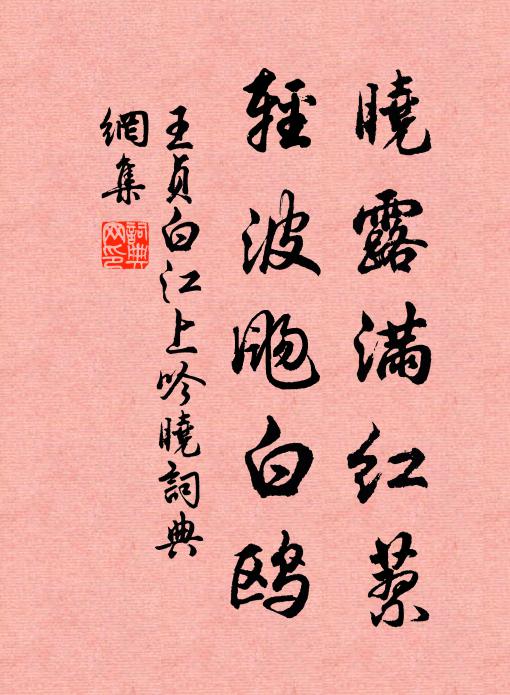 曉露滿紅蓼
輕波颺白鷗
王貞白江上吟曉詞典
網集
詞典网印